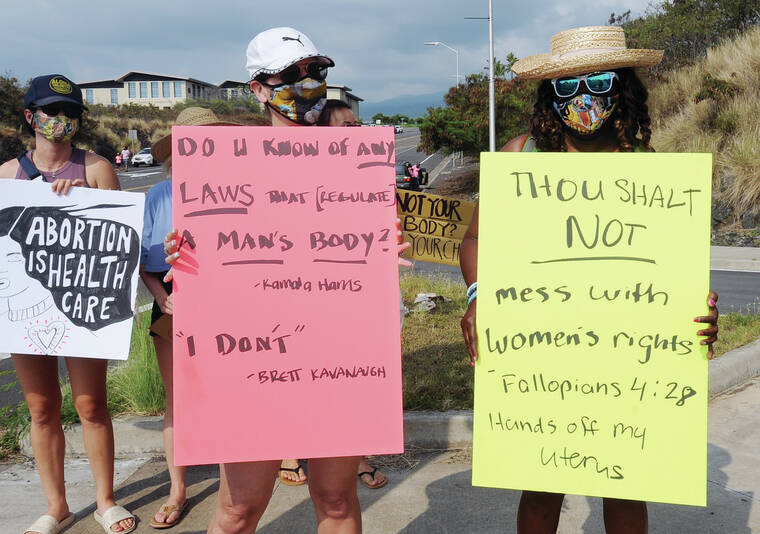 ABORTION
IS HEALTH
CARE
DO U KNOW OF ANY
LAWS THAT [REGULATE]
A MAN'S BODY?
-Kamala Harris
"I DON'T"
-BRETT KAVANAUGH
NOT YOUR
BODY?
YOUR CH
THOU SHALT
NOT
mess with
women's rights
-Fallopians 4:28
Hands off my
uterus